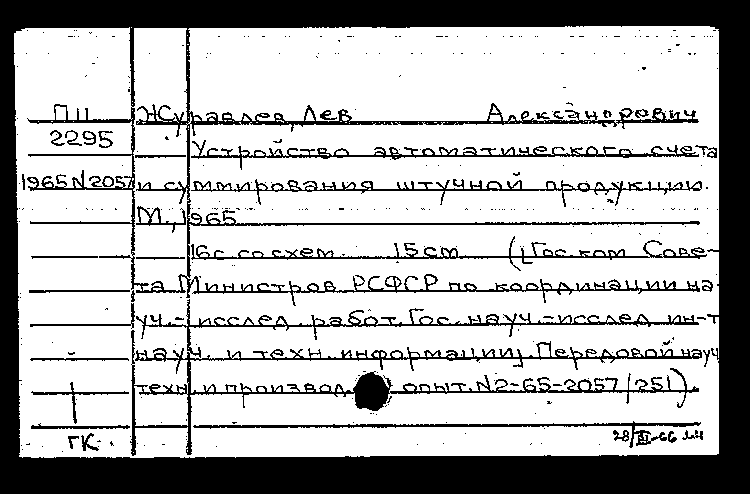 ПП Журавлев, Лев Александрович
2295 Устройство автоматического счета
1965 N2057 и суммирования штучной продукции.
М., 1965
16с. со схем. 15 см ([Гос. ком. Сове-
та Министров РСФСР по координации на-
уч.-исслед. работ. Гос. науч.-исслед. ин-т
науч. и техн. информации]. Передовой науч.
техн. и производ. опыт. N2-65-2057/251).
ГК. 28/III-66